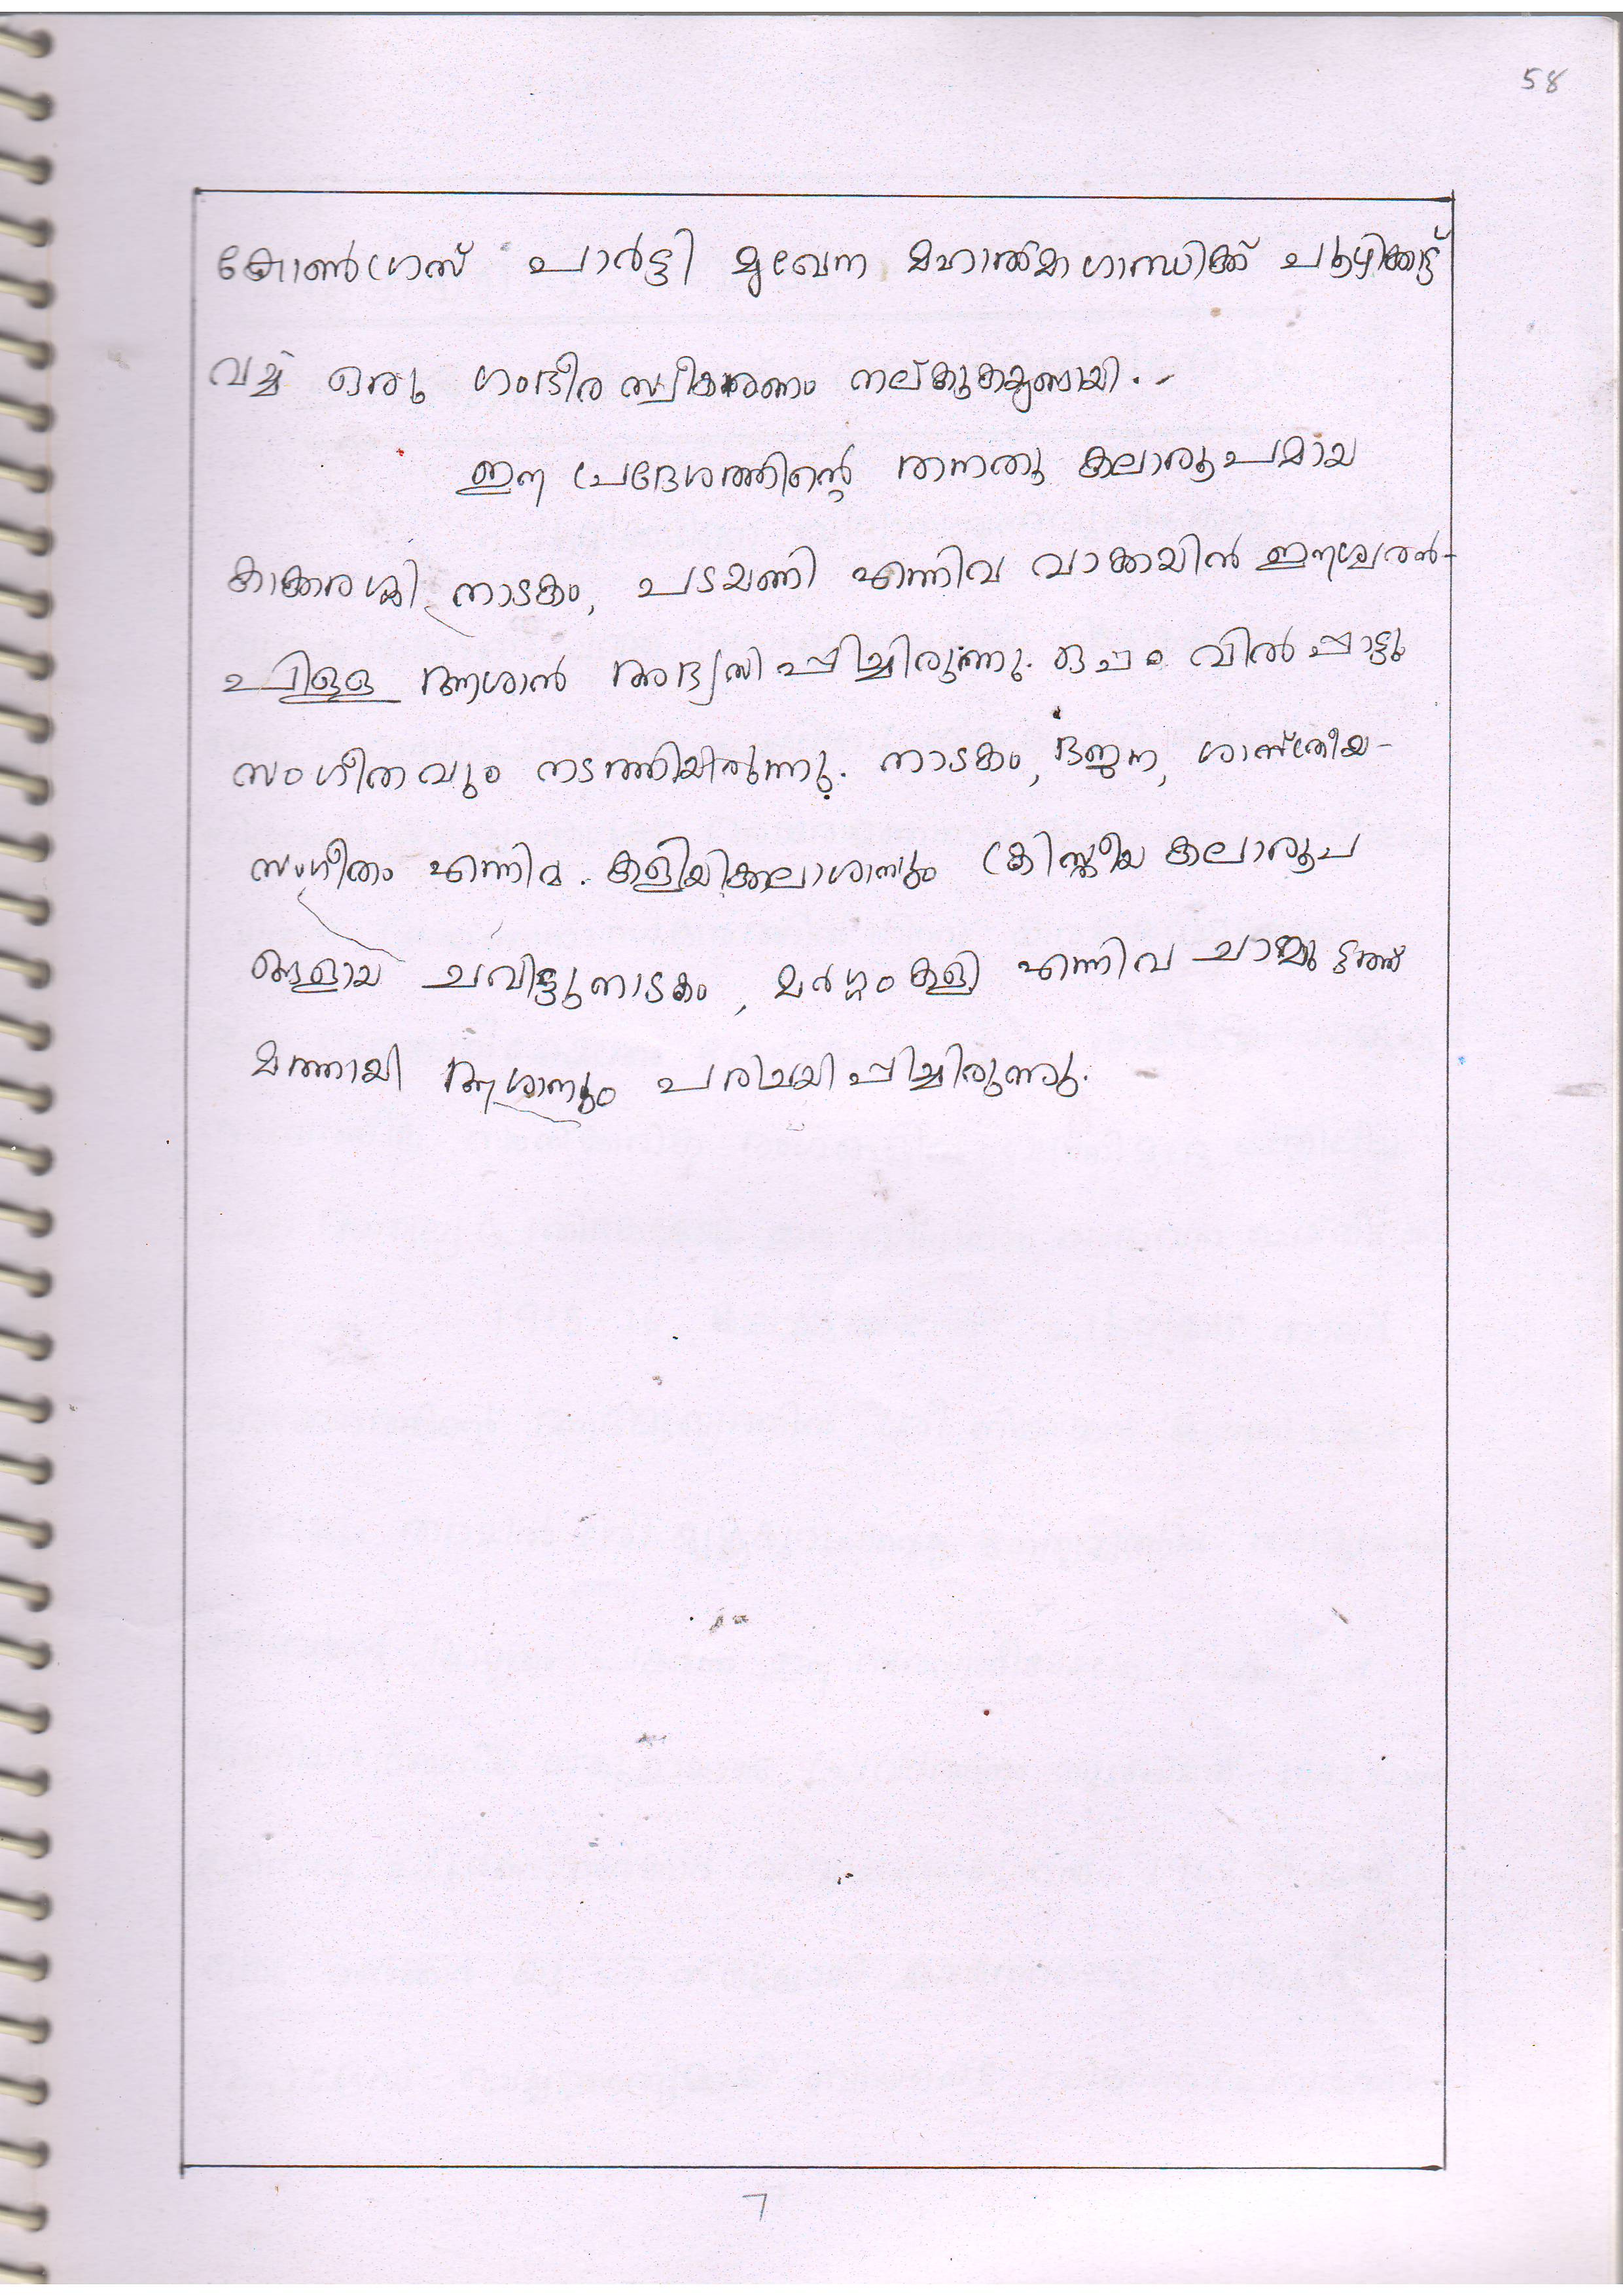 58
കോൺഗ്രസ് പാർട്ടി മുഖേന മഹാൽമാഗാന്ധിക്ക് പൂഴിക്കാട്ട്
വച്ച് ഒരു ഗംഭീര സ്വീകരണം നല്കുകയുണ്ടായി.
ഈ പ്രദേശത്തിന്റെ തനതു കലാരൂപമായ
കാക്കരശ്ശി നാടകം, പടയണി എന്നിവ വാക്കയിൻ ഈശ്വരൻ-
പിള്ള ആശാൻ അഭ്യസിപ്പിച്ചിരുന്നു. ഒപ്പം വിൽപ്പാട്ടും
സംഗീതവും നടത്തിയിരുന്നു. നാടകം, ഭജന, ശാസ്ത്രീയ-
സംഗീതം എന്നിവ. കളിയിക്കലാശാനും ക്രിസ്തീയ കലാരൂപ
ങ്ങളായ ചവിട്ടുനാടകം, മർഗ്ഗംകളി എന്നിവ
മത്തായി ആശാനും പരിചയിപ്പിച്ചിരുന്നു.
7